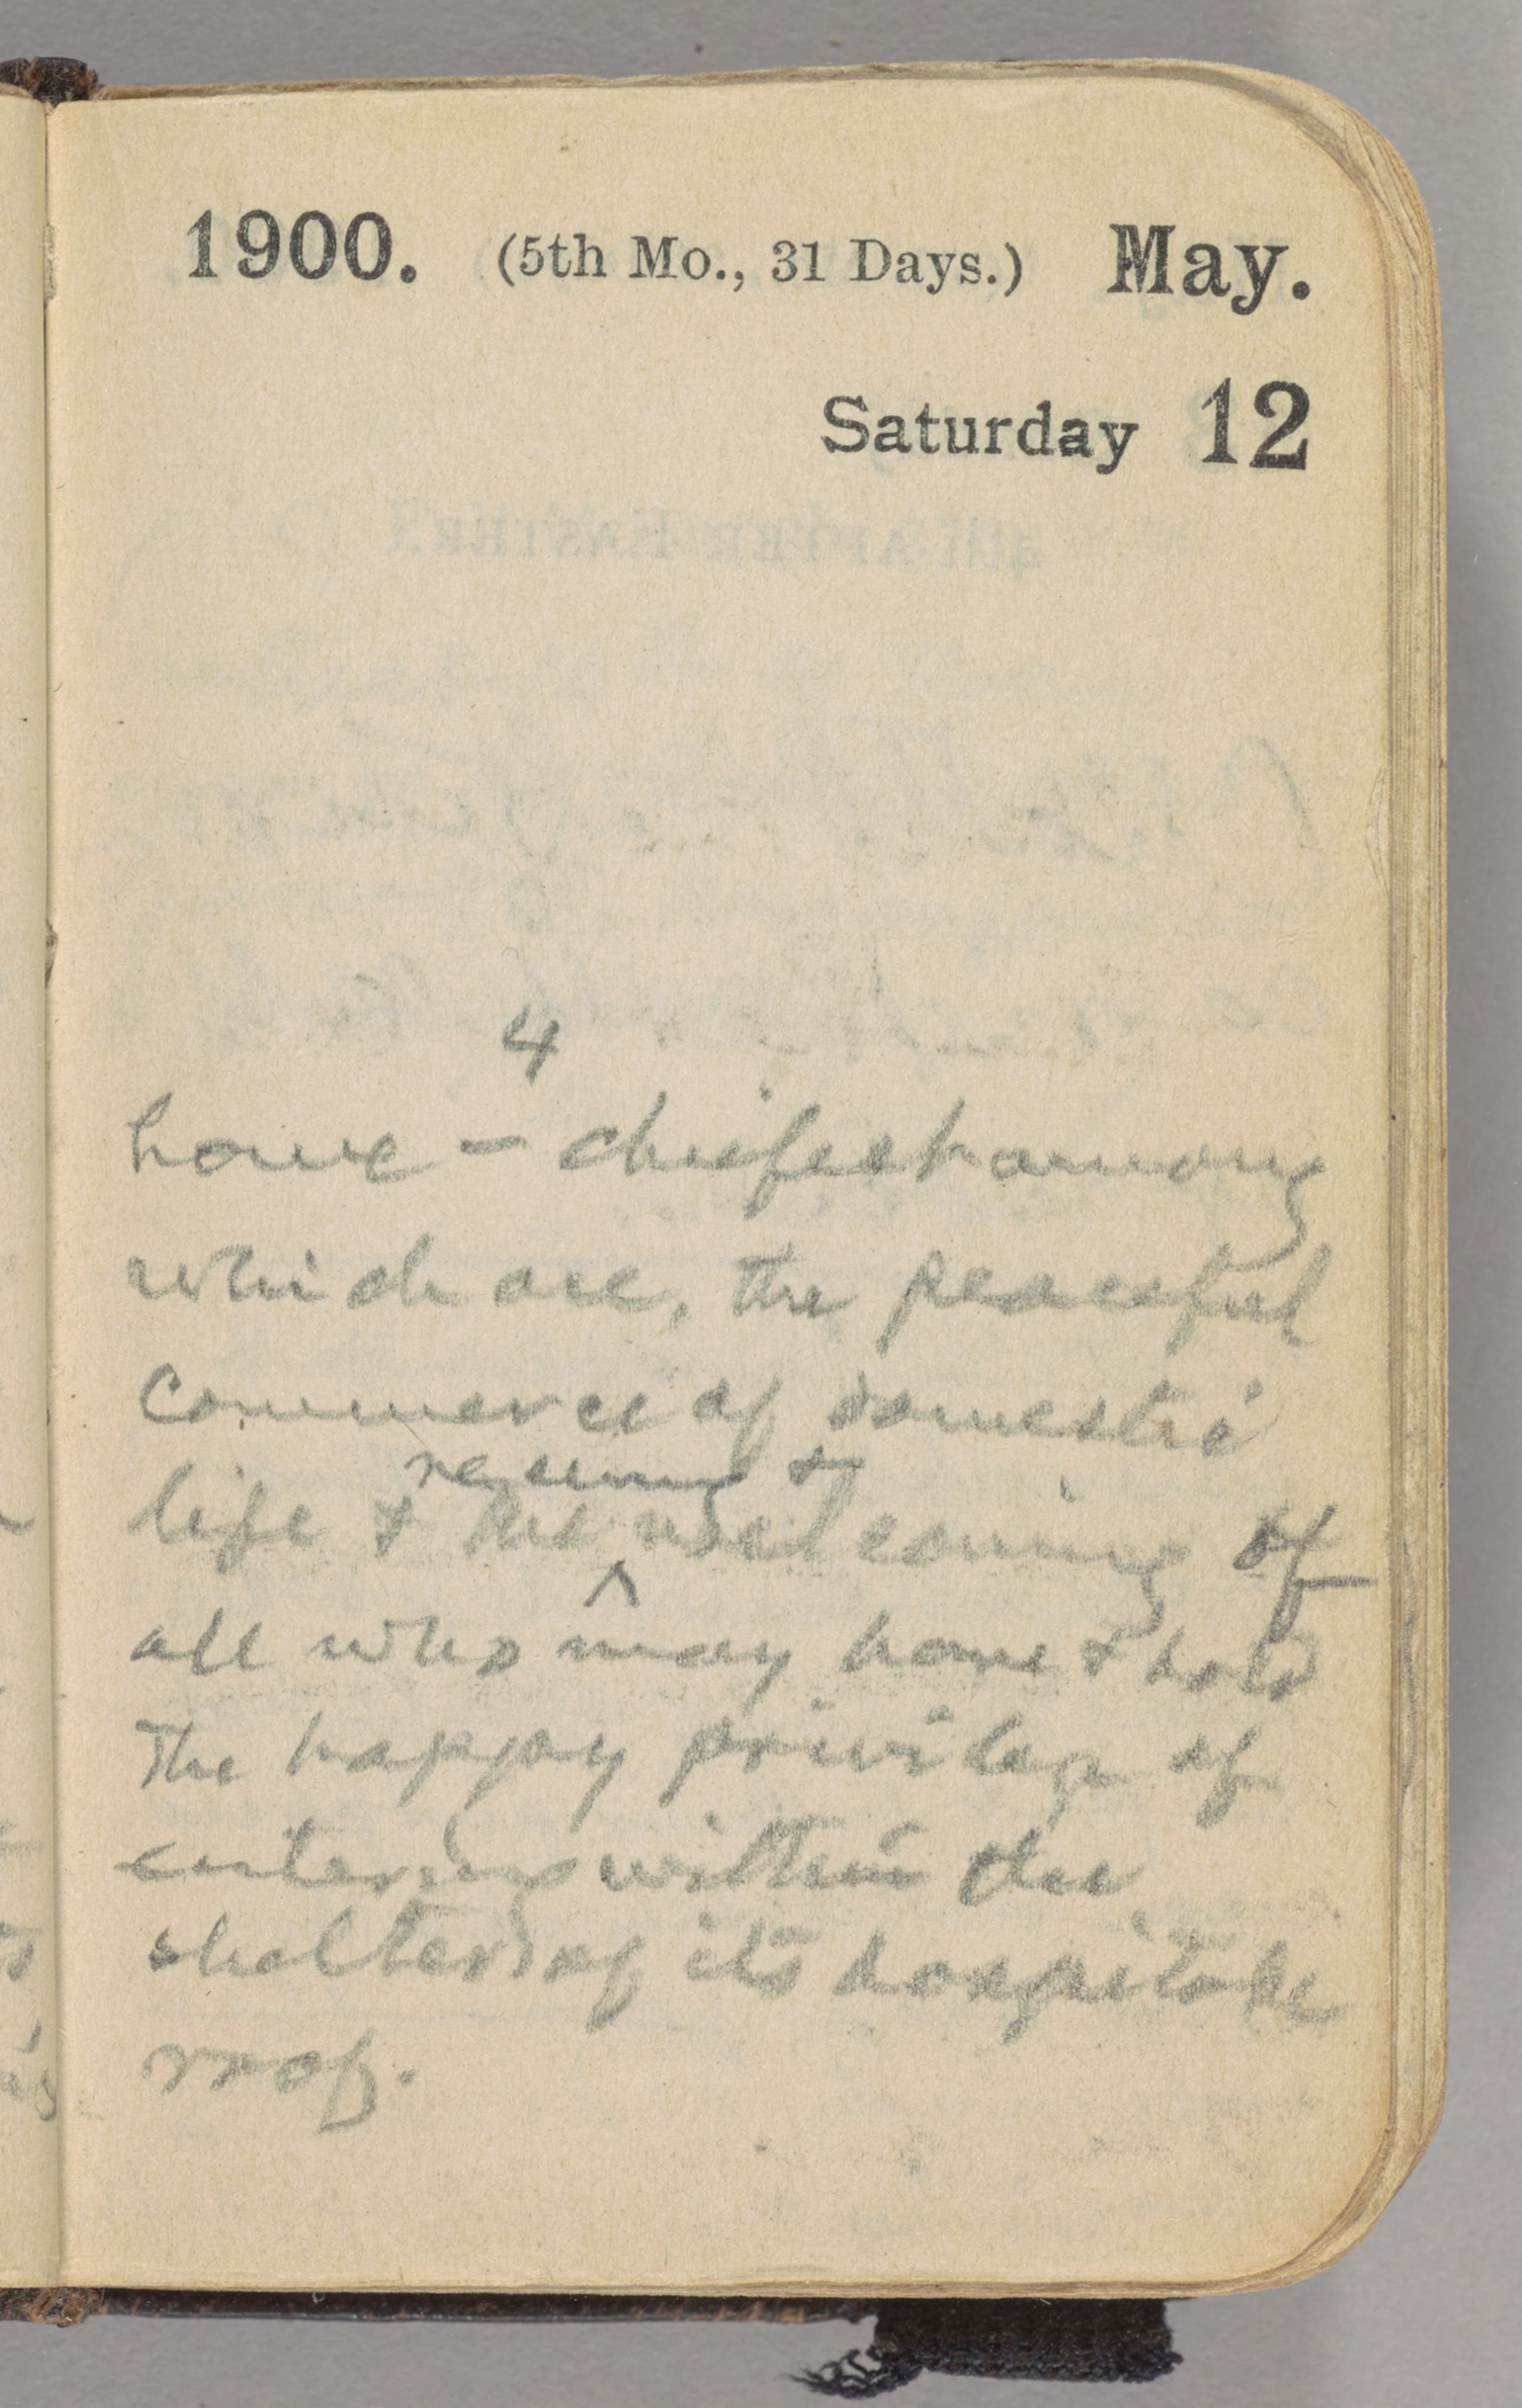 1900. (5th Mo., 31 Days.) May.
Saturday 12
4
home - chiefest among
which are, the peaceful
commerce of domestic
&
life & the welcoming of
all who may have & hold
the happy privilege of
entering within the
shelter of its hospitable
roof.